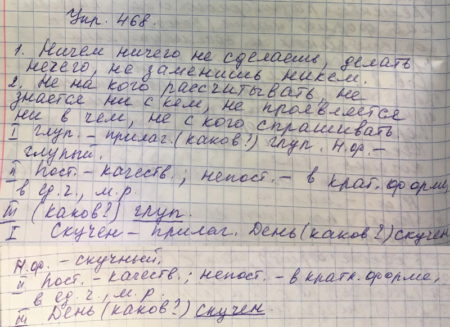 Упр. 468.
1. Ничем ничего не сделаешь, делать
нечего, не заменишь никем.
2. Не на кого рассчитывать, не
знается ни с кем, не проявляется
ни в чем, не с кого спрашивать
I глуп. – прилаг. (каков?) глуп. Н.ф. –
глупый.
II Пост. – качеств.; непост. – в крат. форме,
в ед.ч., м.р.
III (каков?) глуп.
I Скучен – прилаг. День (каков?) скучен
Н.ф. – скучный.
II Пост. – качеств.; непост. – в кратк. форме,
в ед.ч., м.р.
III День (каков?) скучен.